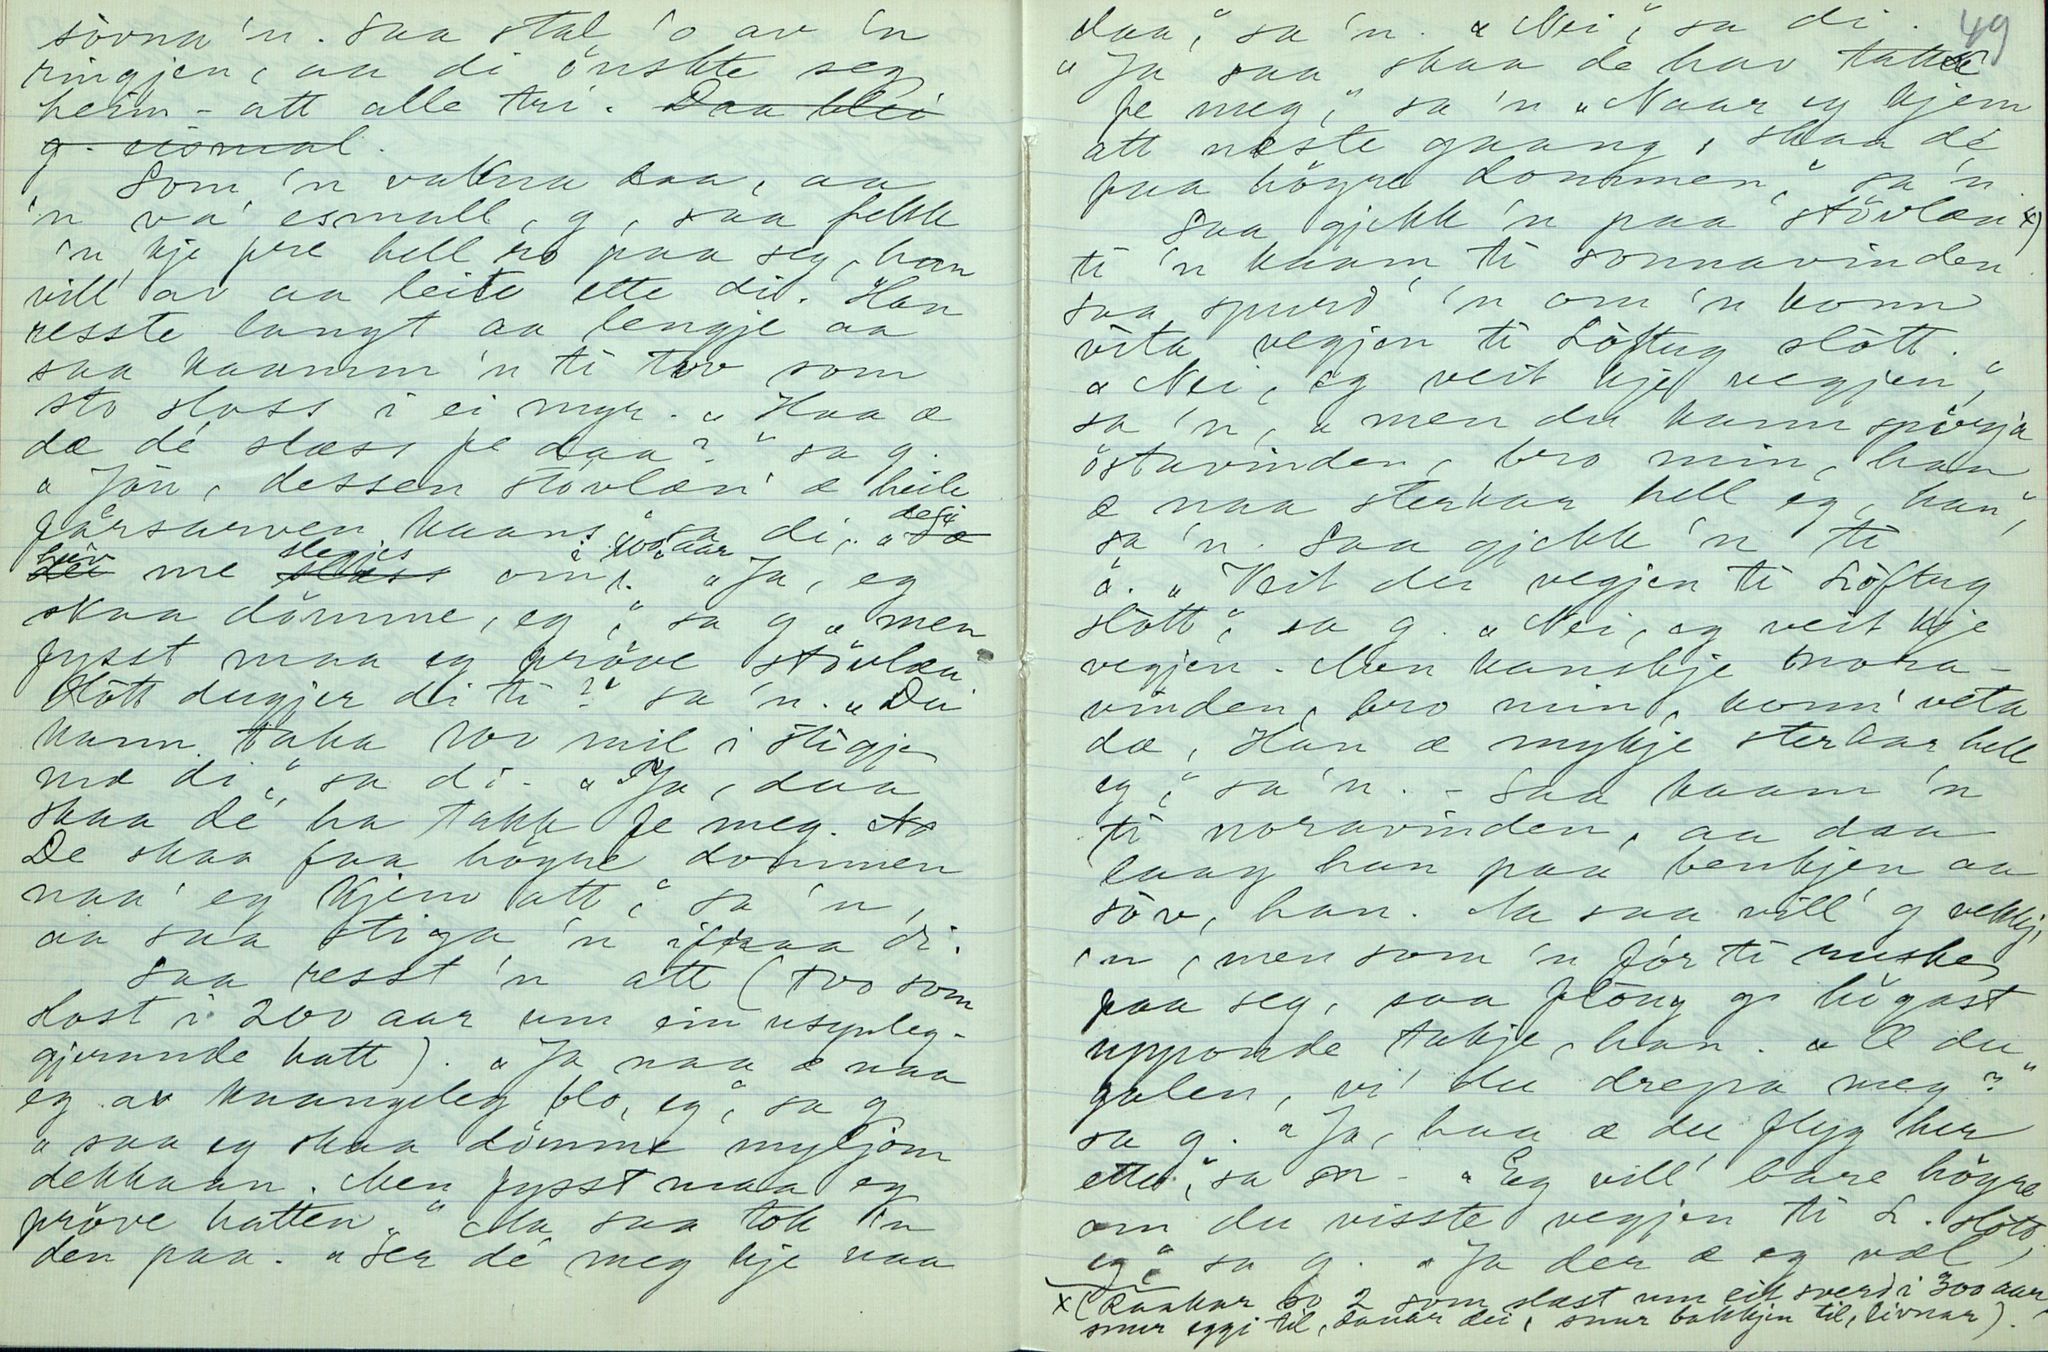 sövna 'n. Saa stal 'o av 'n
ringjen, aa di önskte seg
heim - att alle tri. Daa blei
g. eismal.
Som 'n vakna daa, aa
'n va' esmall, g, saa fekk
'n kje fre hell ro paa seg, han
vill' av aa leite ette di. Han
resste langt aa lengje aa
saa kaamm 'n ti tvo som
sto sloss i ei myr. „Haa æ
dæ dé slæss fe daa?" sa g.
„Jön, dessen stövlæn' æ heile
fårsarven kaans," sa di, „dessu
hev me slegjes om i 100 aar". „Ja, eg
skaa dömme, eg," sa g „men
fysst maa eg pröve stövlæn
Hått dugjer di ti?" sa 'n. „Du
kann taka 100 mil i stigje
mæ di," sa di. „Ja, daa
skaa dé ha takk fe meg.
De skaa faa högre dommen
naa' eg kjem att," sa 'n,
aa saa stiga 'n ifraa di.
Saa resst 'n att (tvo som
slost i 200 aar um ein usynleg-
gjerande hatt). „Ja naa æ naa
eg av kaangeleg blo, eg", sa g
„saa eg skaa dömme myljom
dekkaan. Men fysst maa eg
pröve hatten". Aa saa tok 'n
den paa. „Ser dé meg kje naa
49
daa," sa 'n. „Nei," sa di.
„Ja saa skaa de hav takke
fe meg," sa 'n „Naar eg kjem
att neste gaang, skaa dé
faa högre dommen," sa 'n.
Saa gjekk 'n paa stövlæn x)
ti 'n kaam ti sonnavinden.
saa spurd' 'n om 'n konn
vita vegjen ti Löftug slått.
„Nei, eg veit kje vegjen,"
sa 'n, „men du kann spörja
östavinden, bro min, han
æ naa sterkar hell eg, han,"
sa 'n. Saa gjekk 'n ti
ö. „Veit du vegjen ti Löftug
slått," sa g. „Nei, eg veit kje
vegjen. Men kanskje nora-
vinden, bro min, konn' veta
dæ, Han æ mykje sterkar hell
eg," sa 'n. - Saa kaam 'n
ti noravinden, aa daa
laag han paa benkjen aa
söv, han. Aa saa vill' g vekkje
'n, men som 'n för ti ruske
paa seg, saa flöug g högast
upponde takje, han. „Æ du
galen, vi' du drepa meg?"
sa g. „Ja, haa æ du flyg her
ette," sa 'n - „Eg vill' bare högre
om du visste vegjen ti L. slått,
eg," sa g. „Ja der æ eg væl,
x (Raakar so 2 som slæst um eit sverd i 300 aar,
snur eggi til, dauar dei, snur bakkjen til, livnar).